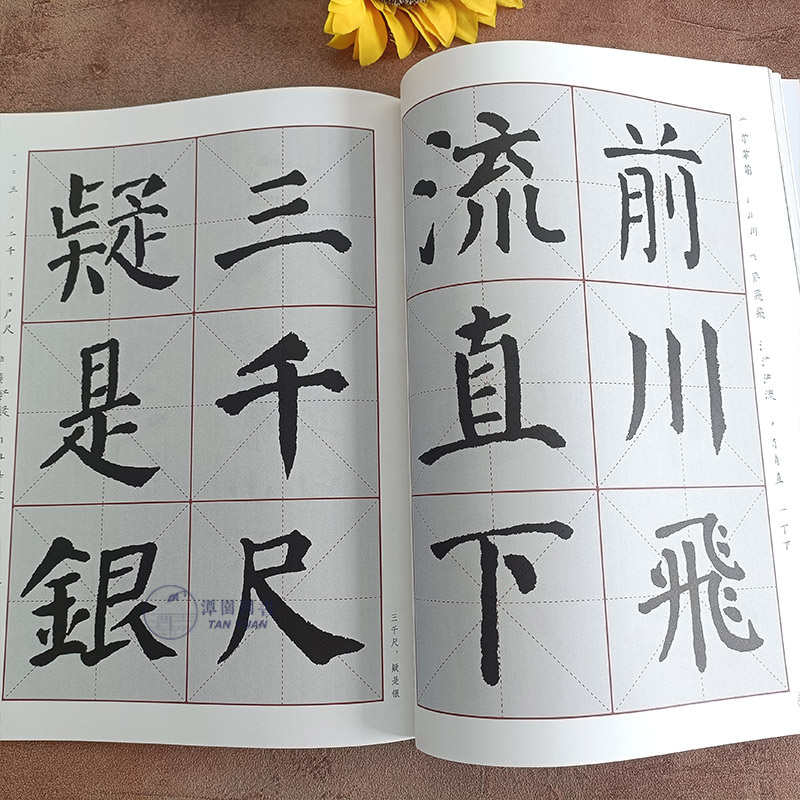 前川飛
流直下
三千尺
疑是銀
三千尺，疑是银
潭園圖書
TAN YUAN